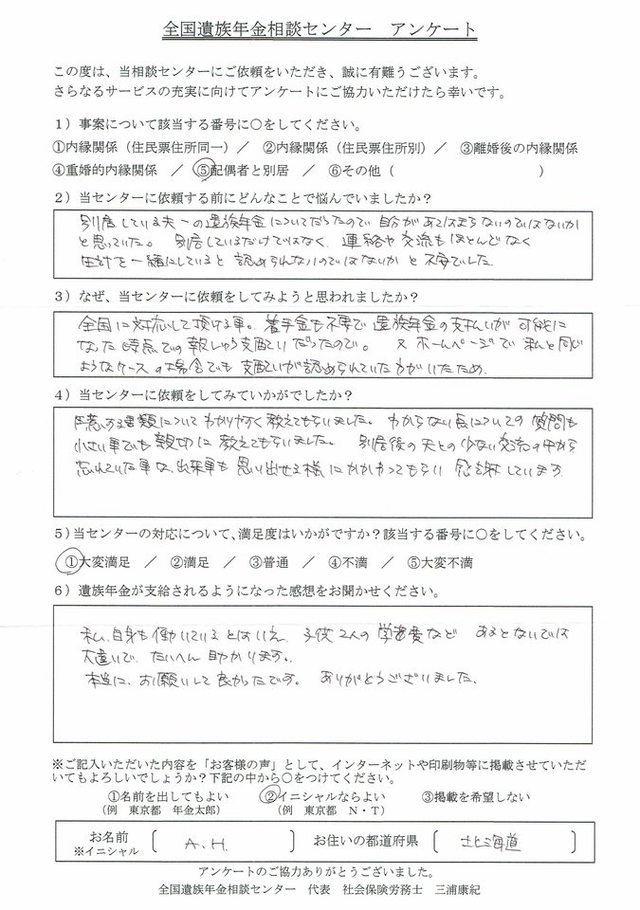 全国遺族年金相談センター　アンケート
この度は、当相談センターにご依頼をいただき、誠に有難うございます。
さらなるサービスの充実に向けてアンケートにご協力いただけたら幸いです。
1）事案について該当する番号に○をしてください。
①内縁関係（住民票住所同一）　／　②内縁関係（住民票住所別）／　③離婚後の内縁関係
④重婚的内縁関係　／　⑤配偶者と別居　／　⑥その他（　　　　　　　　　）
2）当センターに依頼する前にどんなことで悩んでいましたか？
別居している夫への遺族年金についてだったので自分があてはまらないのではないか
と思っていた。別居しているだけではなく、連絡や交流もほとんどなく
生計を一緒にしていると認められないのではないかと不安でした
3）なぜ、当センターに依頼をしてみようと思われましたか？
全国に対応して頂ける事。着手金も不要で遺族年金の支払いが可能に
なった時点での報しゅう支払いだったので。又ホームページで私と同じ
ようなケースの場合でも支払いが認められていた方がいたため
4）当センターに依頼をしてみていかがでしたか？
用意する書類についてわかりやすく教えてもらいました。わからない点についての質問も
小さい事でも親切に教えてもらいました。別居後の夫との少ない交流の中から
忘れていた事な、出来事も思い出せる様にかかわってもらい感謝しています
5）当センターの対応について、満足度はいかがですか？該当する番号に○をしてください。
①大変満足　／　②満足　／　③普通　／　④不満　／　⑤大変不満
6）遺族年金が支給されるようになった感想をお聞かせください。
私、自身も働いているとはいえ、子供2人の学費など　あるとないでは
大違いで、たいへん助かります。
本当に、お願いして良かったです。ありがとうございました。
※ご記入いただいた内容を「お客様の声」として、インターネットや印刷物等に掲載させていただ
いてもよろしいでしょうか？下記の中から○をつけてください。
①名前を出してもよい　②イニシャルならよい　③掲載を希望しない
（例　東京都　年金太郎）　（例　東京都　N・T）
お名前　A.H.　お住いの都道府県　北海道
※イニシャル
アンケートのご協力ありがとうございました。
全国遺族年金相談センター　代表　社会保険労務士　三浦康紀